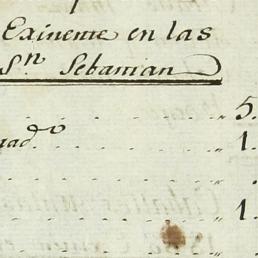 Existente en las
Sⁿ. Sebastian
5.
uad.º 1.
1.